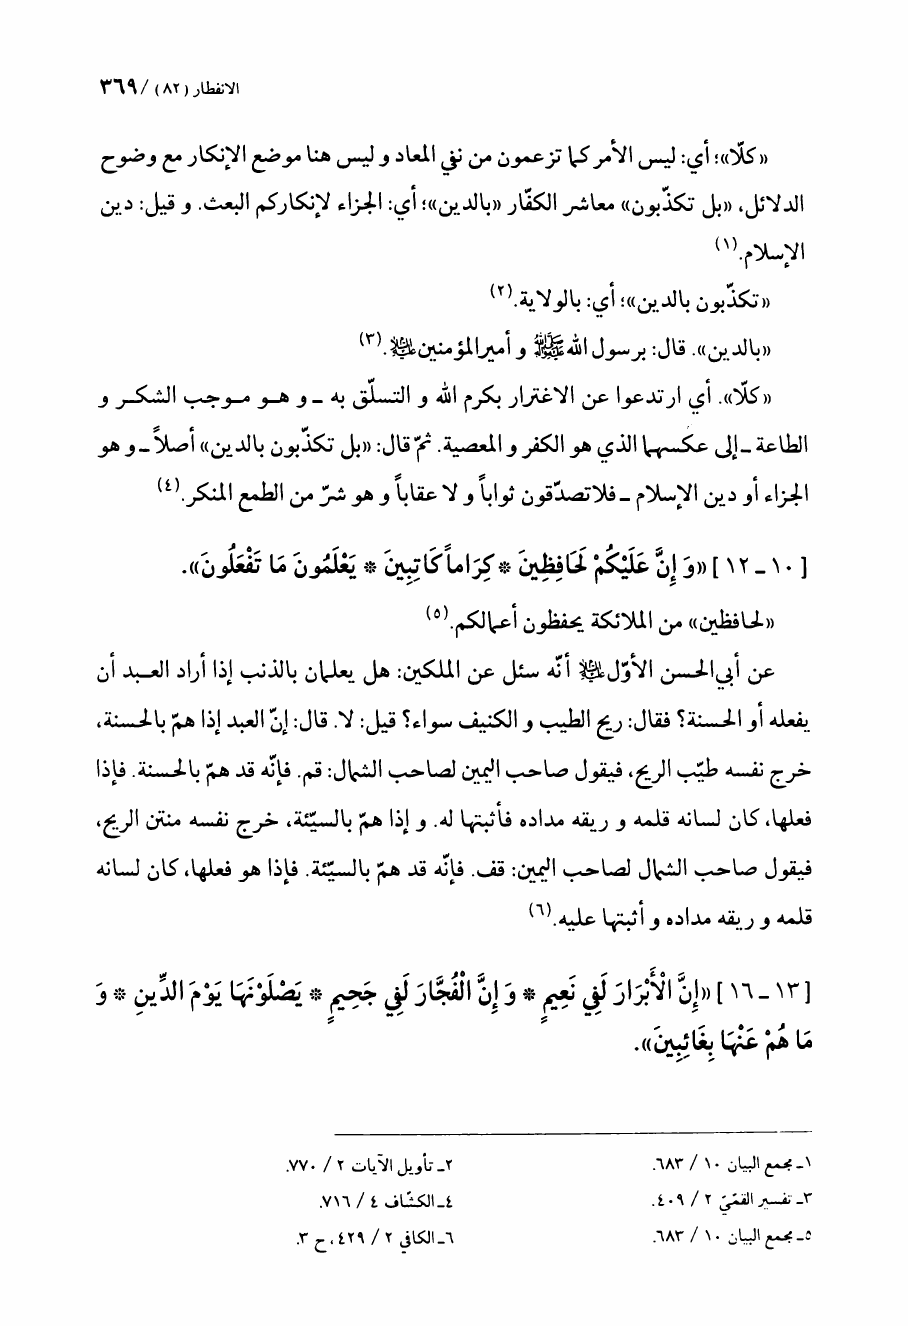 الانفطار (٨٢) / ٣٦٩
«كلّا»؛ أي: ليس الأمر كما تزعمون من نفي المعاد و ليس هنا موضع الإنكار مع وضوح
الدلائل، «بل تكذّبون» معاشر الكفّار «بالدين»؛ أي: الجزاء لإنكاركم البعث. و قيل: دين
الإسلام.(١)
«تكذّبون بالدين»؛ أي: بالولاية.(٢)
«بالدين». قال: برسول الله ﷺ و أميرالمؤمنين عليه السلام.(٣)
«كلّا». أي ارتدعوا عن الاغترار بكرم الله و التسلّق به ـ و هـو مـوجب الشكـر و
الطاعة ـ إلى عكسها الذي هو الكفر و المعصية. ثمّ قال: «بل تكذّبون بالدين» أصلاً ـ و هو
الجزاء أو دين الإسلام ـ فلاتصدّقون ثواباً و لا عقاباً و هو شرّ من الطمع المنكر.(٤)
[١٠ ـ ١٢] «وَ إِنَّ عَلَيْكُمْ لَحَافِظِينَ * كِرَاماً كَاتِبِينَ * يَعْلَمُونَ مَا تَفْعَلُونَ».
«لحافظين» من الملائكة يحفظون أعمالكم.(٥)
عن أبي‌الحسن الأوّل عليه السلام أنّه سئل عن الملكين: هل يعلمان بالذنب إذا أراد العـبد أن
يفعله أو الحسنة؟ فقال: ريح الطيب و الكنيف سواء؟ قيل: لا. قال: إنّ العبد إذا همّ بالحسنة،
خرج نفسه طيّب الريح، فيقول صاحب اليمين لصاحب الشمال: قم. فإنّه قد همّ بالحسنة. فإذا
فعلها، كان لسانه قلمه و ريقه مداده فأثبتها له. و إذا همّ بالسيّئة، خرج نفسه منتن الريح،
فيقول صاحب الشمال لصاحب اليمين: قف. فإنّه قد همّ بالسيّئة. فإذا هو فعلها، كان لسانه
قلمه و ريقه مداده و أثبتها عليه.(٦)
[١٣ ـ ١٦] «إِنَّ الْأَبْرَارَ لَفِي نَعِيمٍ * وَ إِنَّ الْفُجَّارَ لَفِي جَحِيمٍ * يَصْلَوْنَهَا يَوْمَ الدِّينِ * وَ
مَا هُمْ عَنْهَا بِغَائِبِينَ».
١ـ مجمع البيان ١٠ / ٦٨٣.
٢ـ تأويل الآيات ٢ / ٧٧٠.
٣ـ تفسير القمّيّ ٢ / ٤٠٩.
٤ـ الكشّاف ٤ / ٧١٦.
٥ـ مجمع البيان ١٠ / ٦٨٣.
٦ـ الكافي ٢ / ٤٢٩، ح ٣.